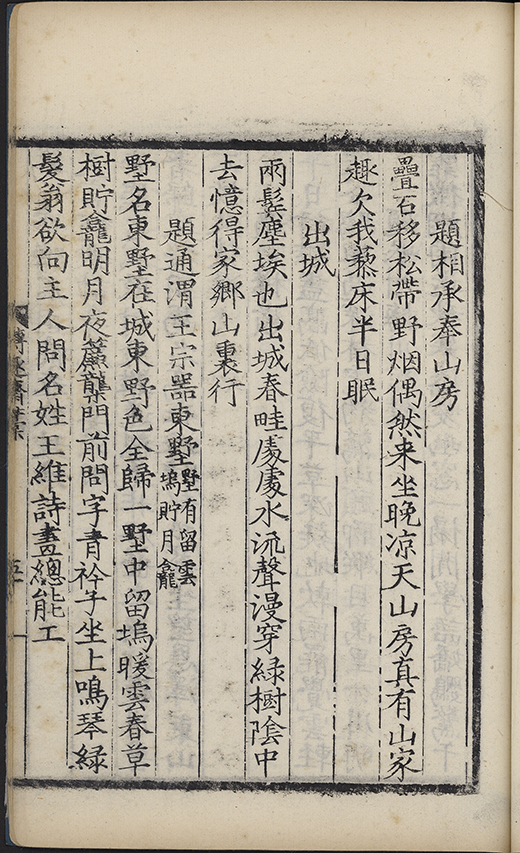 題相承奉山房
疊石移松帶野烟偶然来坐晚凉天山房真有山家
趣欠我藜床半日眠
出城
兩髩塵埃也出城春畦處處水流聲漫穿緑樹陰中
去憶得家鄉山裏行
題通渭王宗器東墅墅有留雲塢貯月龕
墅名東墅在城東野色全歸一墅中留塢暖雲春草
樹貯龕明月夜簾櫳門前問字青衿子坐上鳴琴緑
髮翁欲向主人問名姓王維詩畫總能工